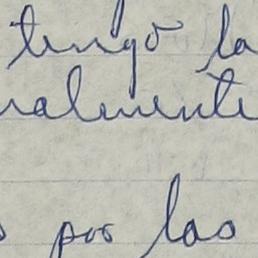 tengo la
almente
por las